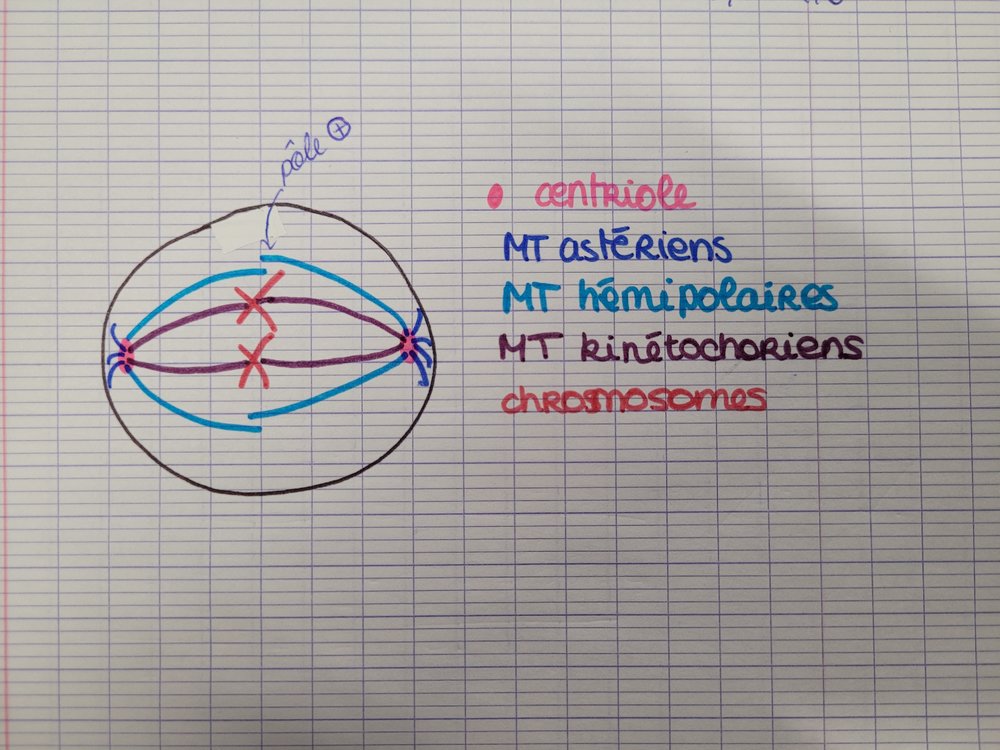 pôle ⊕
centriole
MT astériens
MT hémipolaires
MT kinétochoriens
chromosomes